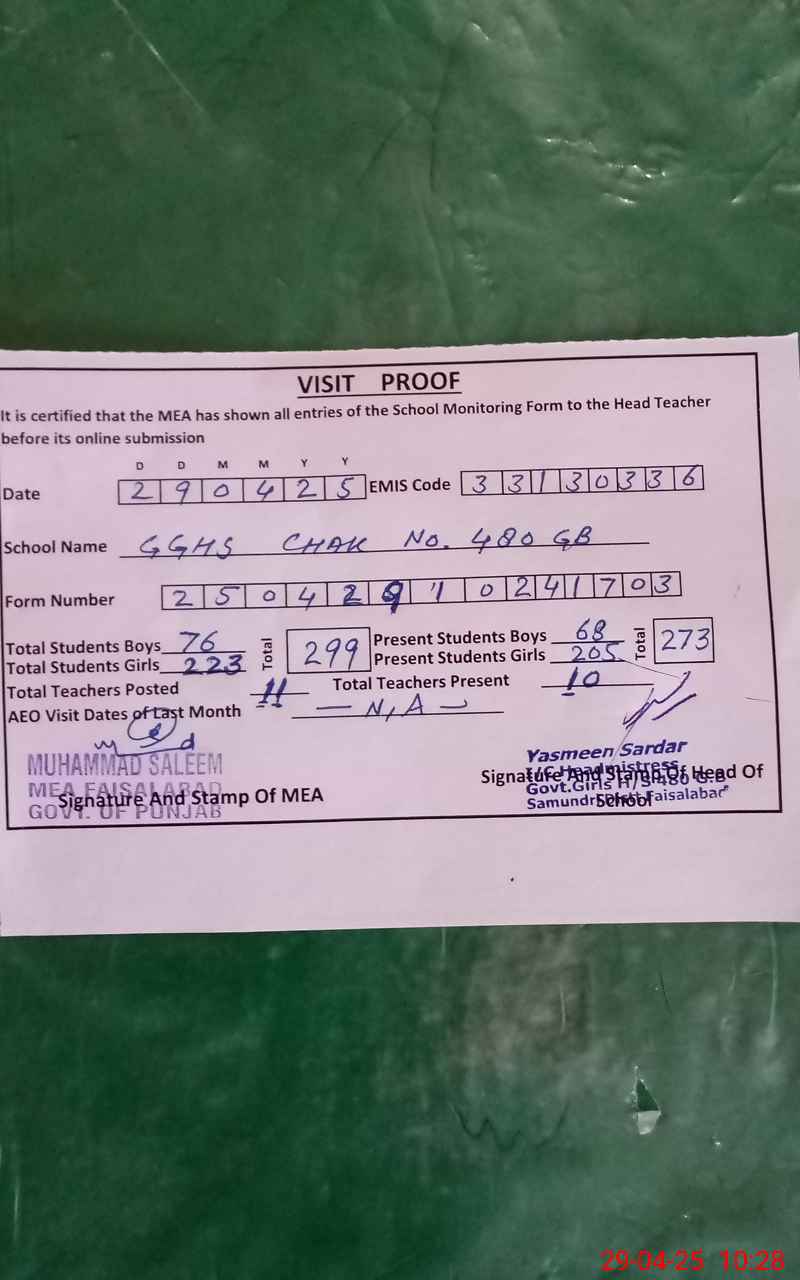 VISIT PROOF
It is certified that the MEA has shown all entries of the School Monitoring Form to the Head Teacher
before its online submission
D D M M Y Y
Date 2 9 0 4 2 5 EMIS Code 3 3 1 3 0 3 3 6
School Name GGHS CHAK No. 480 GB
Form Number 2 5 0 4 2 9 1 0 2 4 1 7 0 3
Total Students Boys 76 Total 299 Present Students Boys 68 Total 273
Total Students Girls 223 Present Students Girls 205
Total Teachers Posted 11 Total Teachers Present 10
AEO Visit Dates of Last Month — N,A —
MUHAMMAD SALEEM
MEA FAISALABAD
GOVT. OF PUNJAB
Signature And Stamp Of MEA
Yasmeen Sardar
I/C Headmistress
Govt.Girls H/S 480 G.B
Samundri Distt.Faisalabad
Signature And Stamp Of Head Of
School
29-04-25 10:28